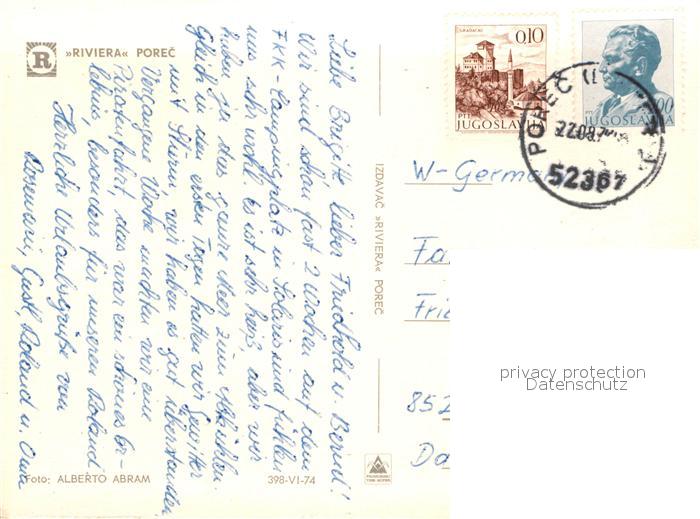 »RIVIERA« POREČ
Liebe Brigitte, lieber Friedhold u. Bernd!
Wir sind schon fast 2 Wochen auf dem
FKK-Campingplatz in Solaris und fühlen
uns sehr wohl. Es ist sehr heiß, aber wir
haben ja das ganze Meer zum Abkühlen.
Gleich in den ersten Tagen hatten wir Gewitter
mit Sturm, wir haben es gut überstanden.
Vergangene Woche machten wir eine
Piratenfahrt, das war ein schönes Er-
lebnis, besonders für unseren Roland
Herzliche Urlaubsgrüße von
Rosemarie, Gustl, Roland u. Oma
Foto: ALBERTO ABRAM
398-VI-74
IZDAVAČ »RIVIERA« POREČ
GRADAČAC
0,10
PTT
JUGOSLAVIJA
PTT
JUGOSLAVIJA
POREČ
52367
W-Germa
Fa
Frie
852
Da
privacy protection
Datenschutz